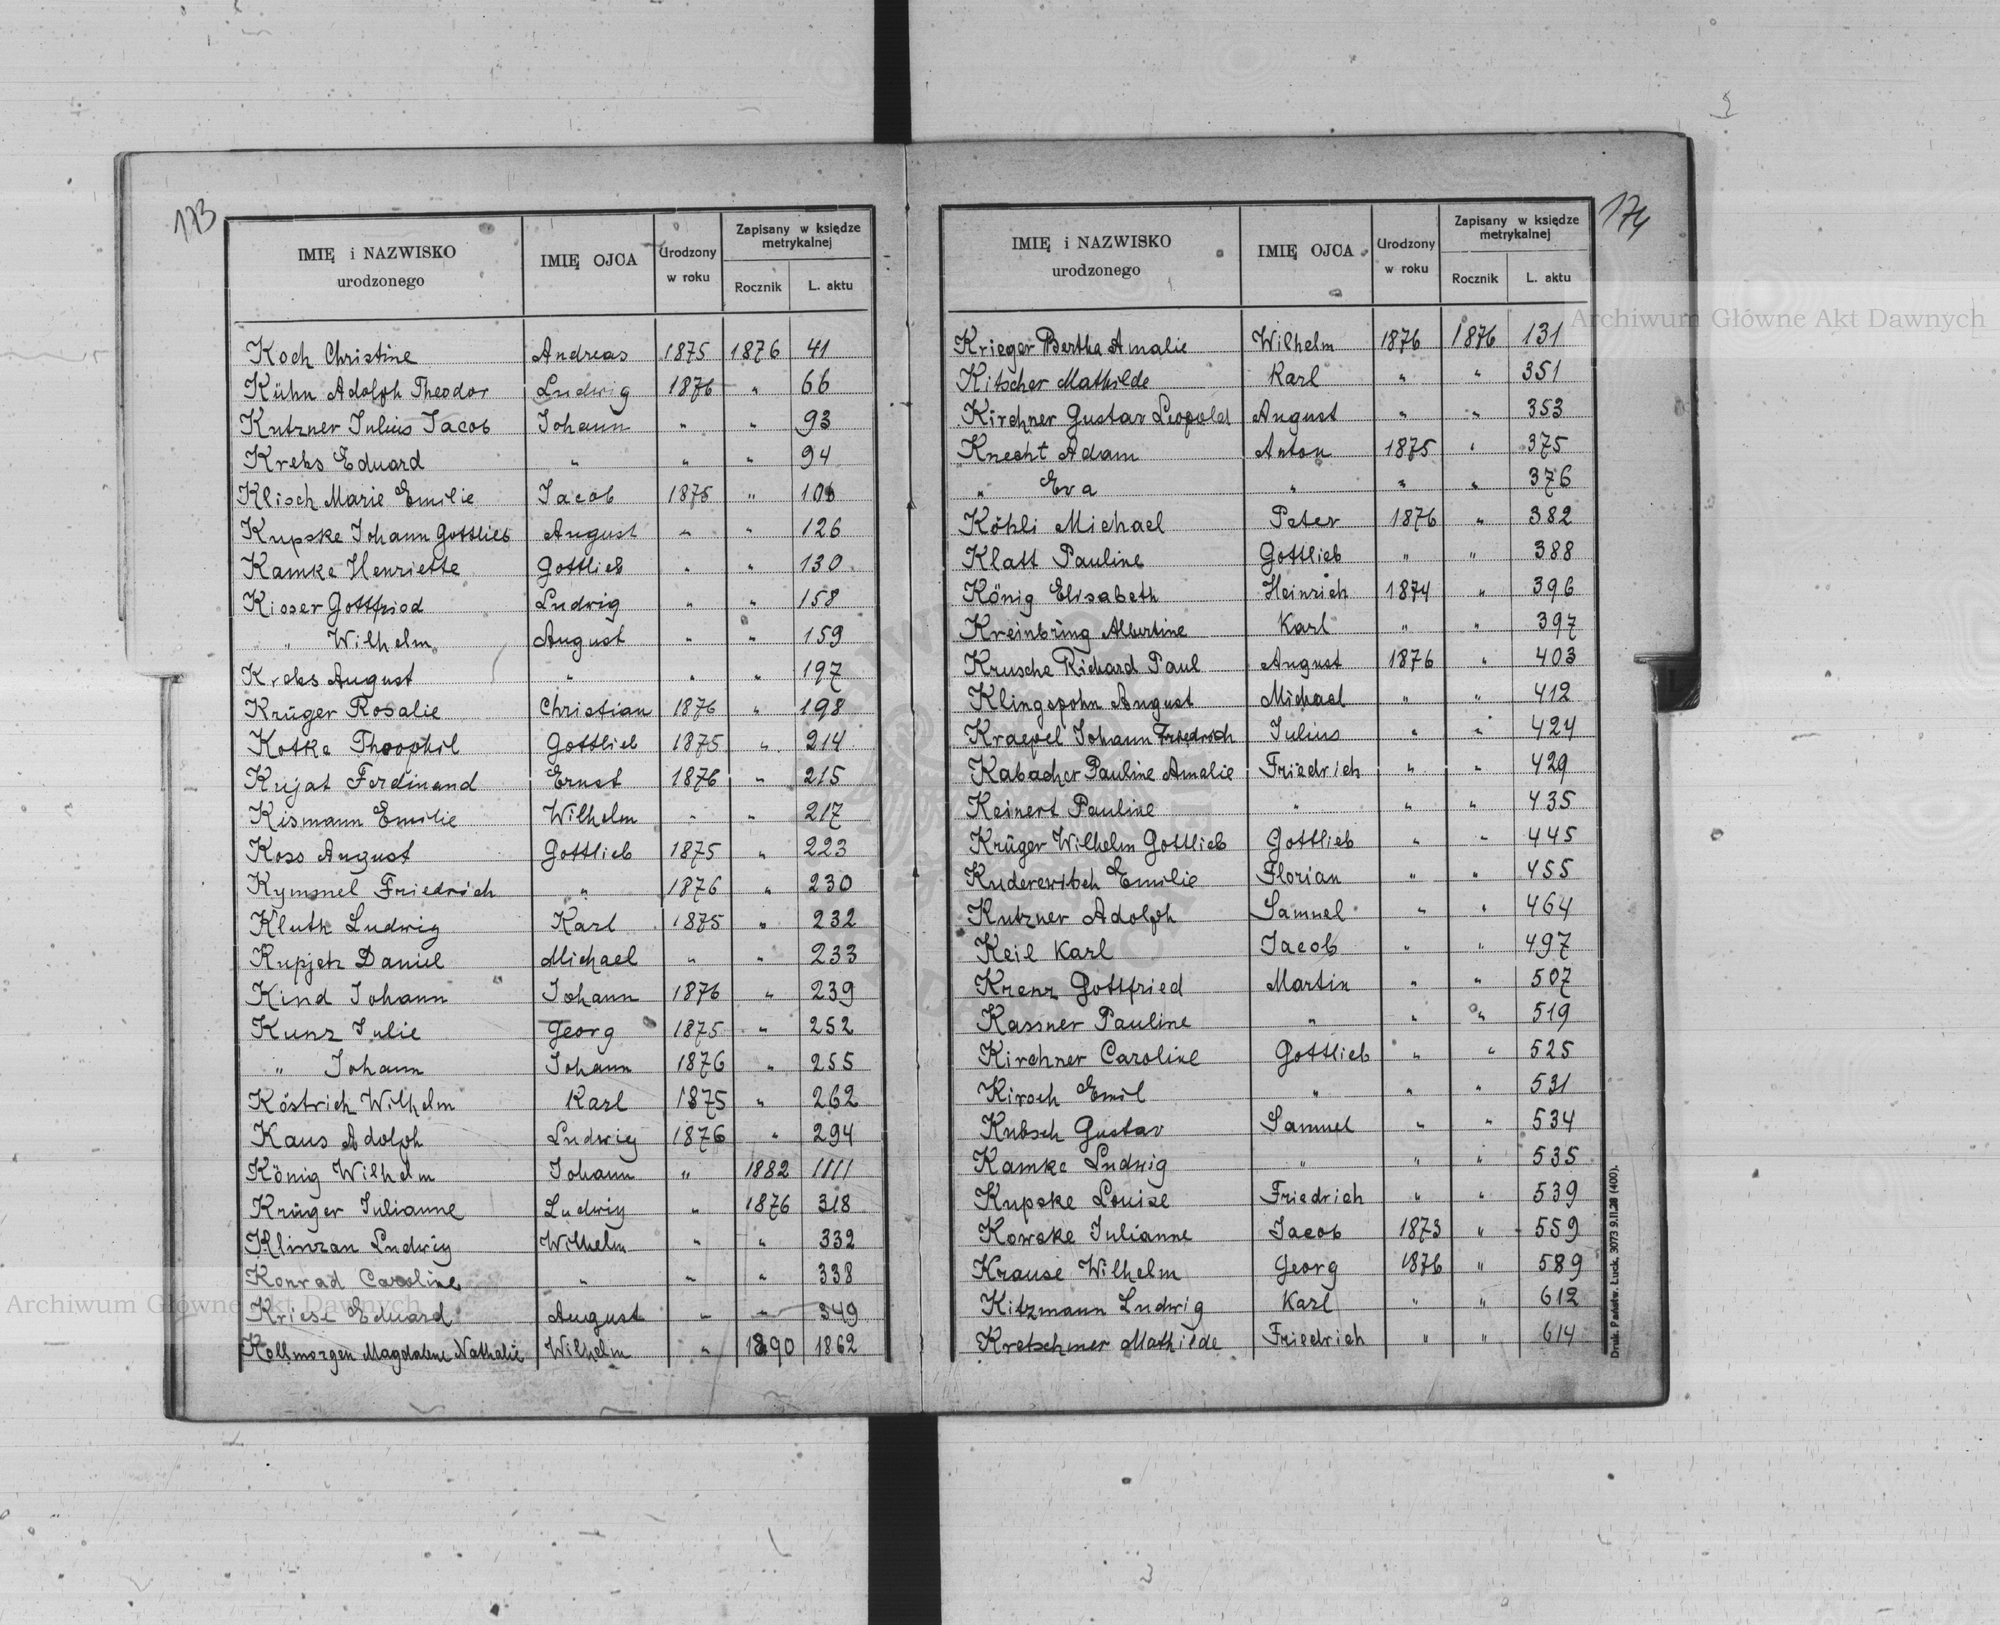 173
IMIĘ i NAZWISKO urodzonego IMIĘ OJCA Urodzony w roku Zapisany w księdze metrykalnej Rocznik L. aktu
Koch Christine Andreas 1875 1876 41
Kühn Adolph Theodor Ludwig 1876 " 66
Kutzner Julius Jacob Johann " " 93
Krebs Eduard " " " 94
Klisch Marie Emilie Jacob 1875 " 106
Kupske Johann Gottlieb August " " 126
Kamke Henriette Gottlieb " " 130
Kieser Gottfried Ludwig " " 158
" Wilhelm August " " 159
Krebs August " " " 197
Krüger Rosalie Christian 1876 " 198
Kotke Theophil Gottlieb 1875 " 214
Kujat Ferdinand Ernst 1876 " 215
Kismann Emilie Wilhelm " " 217
Koss August Gottlieb 1875 " 223
Kymmel Friedrich " 1876 " 230
Kluth Ludwig Karl 1875 " 232
Kupjetz Daniel Michael " " 233
Kind Johann Johann 1876 " 239
Kunz Julie Georg 1875 " 252
" Johann Johann 1876 " 255
Köstrich Wilhelm Karl 1875 " 262
Kaus Adolph Ludwig 1876 " 294
König Wilhelm Johann " 1882 1111
Krüger Julianne Ludwig " 1876 318
Klinzan Ludwig Wilhelm " " 332
Konrad Caroline " " " 338
Kriese Eduard August " " 349
Kollmorgen Magdalene Nathalie Wilhelm " 1890 1862
174
IMIĘ i NAZWISKO urodzonego IMIĘ OJCA Urodzony w roku Zapisany w księdze metrykalnej Rocznik L. aktu
Krieger Bertha Amalie Wilhelm 1876 1876 131
Kitscher Mathilde Karl " " 351
Kirchner Gustav Leopold August " " 353
Knecht Adam Anton 1875 " 375
" Eva " " " 376
Köhli Michael Peter 1876 " 382
Klatt Pauline Gottlieb " " 388
König Elisabeth Heinrich 1874 " 396
Kreinbring Albertine Karl " " 397
Krusche Richard Paul August 1876 " 403
Klingspohn August Michael " " 412
Kraepel Johann Friedrich Julius " " 424
Kabacher Pauline Amalie Friedrich " " 429
Keinert Pauline " " " 435
Krüger Wilhelm Gottlieb Gottlieb " " 445
Kuderewitsch Emilie Florian " " 455
Kutzner Adolph Samuel " " 464
Keil Karl Jacob " " 497
Krenz Gottfried Martin " " 507
Kassner Pauline " " " 519
Kirchner Caroline Gottlieb " " 525
Kirsch Emil " " " 531
Kubsch Gustav Samuel " " 534
Kamke Ludwig " " " 535
Kupske Louise Friedrich " " 539
Kowske Julianne Jacob 1873 " 559
Krause Wilhelm Georg 1876 " 589
Kitzmann Ludwig Karl " " 612
Kretschmer Mathilde Friedrich " " 614
Druk. Państw. Łuck. 3073 9.11.28 (400).
Archiwum Główne Akt Dawnych
Archiwum Główne Akt Dawnych